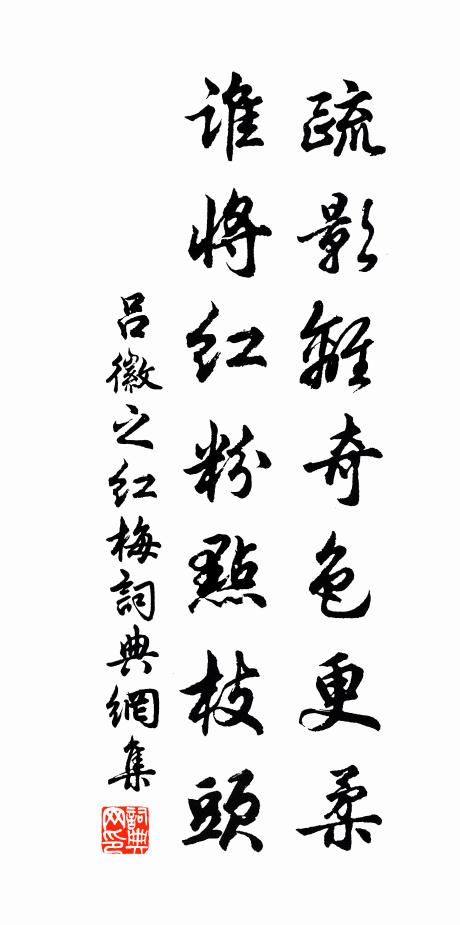 疏影離奇色更柔
誰將紅粉點枝頭
呂徽之紅梅詞典網集
詞典網印